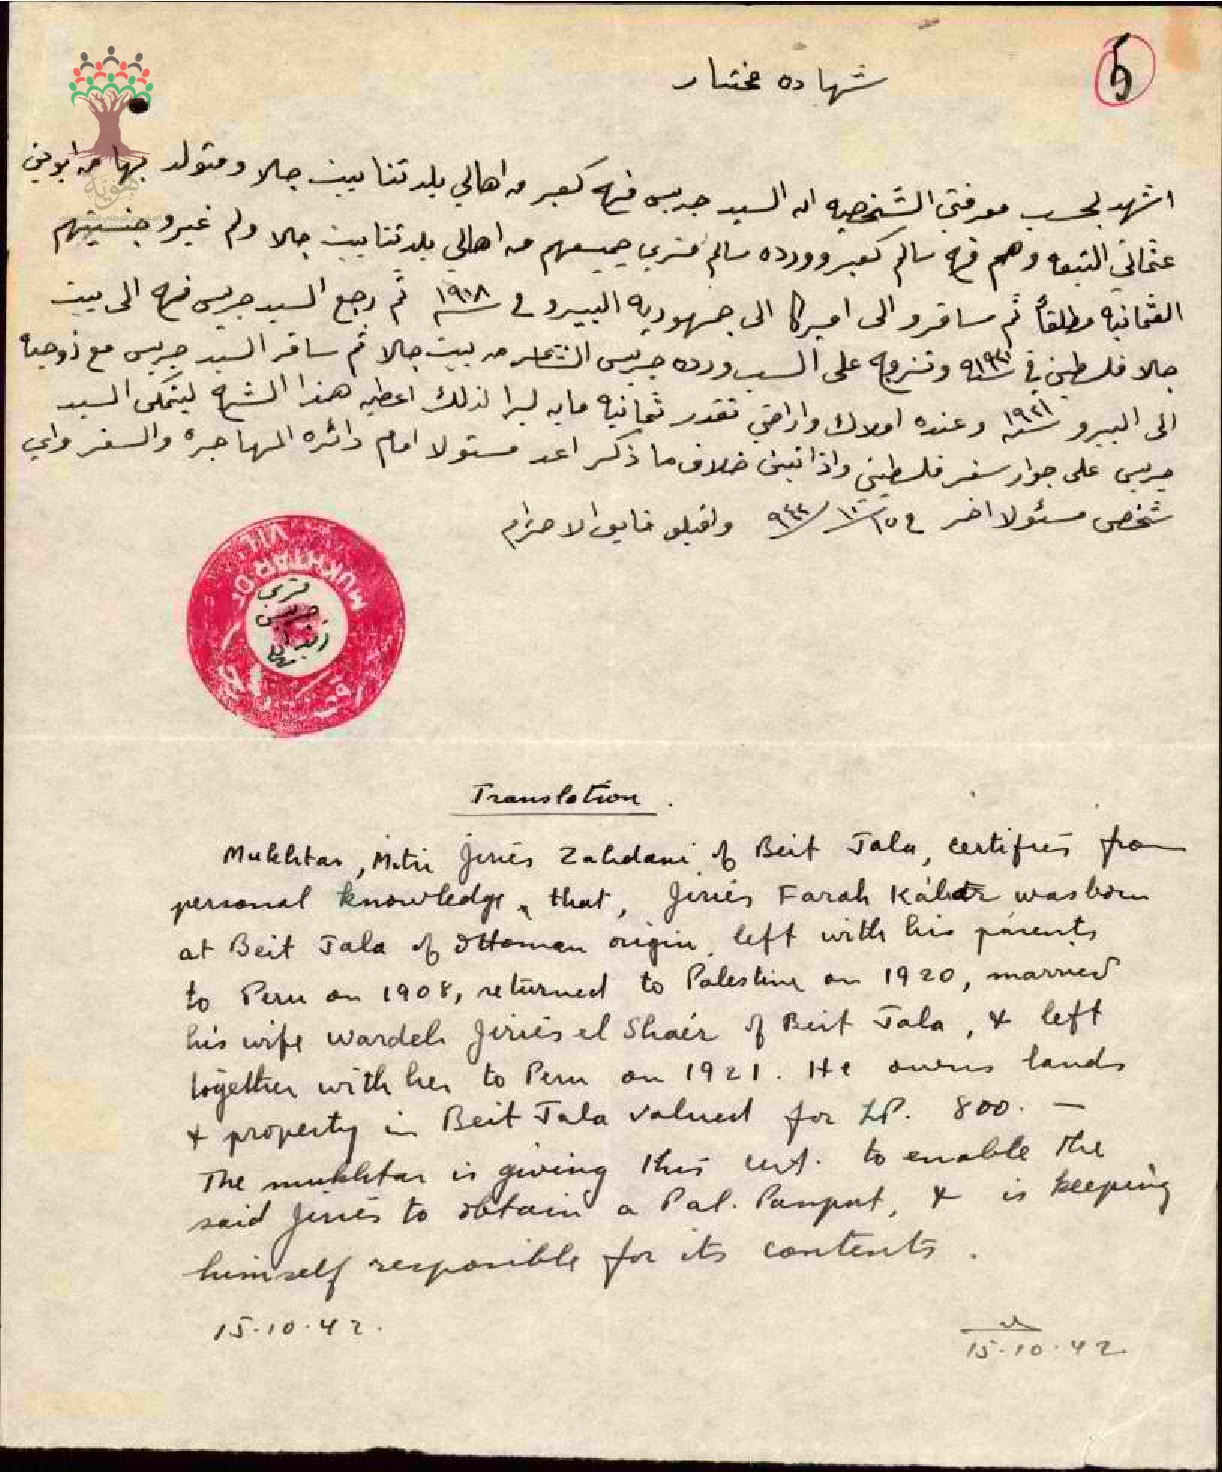 5
شهاده مختار
اشهد بحسب معرفتي الشخصيه ان السيد جريس فرح كعبر من اهالي بلدتنا بيت جالا ومتولد بها من ابوين
عثماني التبعه وهم فرح سالم كعبر وورده سالم جميعهم من اهالي بلدتنا بيت جالا ولم غيرو جنسيتهم
العثمانيه مطلقاً ثم سافرو الى اميركا الى جمهورية البيرو في سنة ١٩٠٨ ثم رجع السيد جريس فرح الى بيت
جالا فلسطين في سنة وتزوج على الست ورده جريس الشاعر من بيت جالا ثم سافر السيد جريس مع زوجته
الى البيرو سنة ١٩٢١ وعنده املاك واراضي تقدر ثمانية مايه ليرا لذلك اعطيه هذا الشرح ليتمكن السيد
جريس على جواز سفر فلسطيني واذا تبين خلاف ما ذكر اعد مسئولا امام دائره المهاجره والسفر واي
شخص مسئولا اخر في ١٥/١٠/٩٤٢ واقبلو فايق الاحترام
MUKHTAR OF
VILL
Translation.
Mukhtar, Mitri Jiriés Zahdani of Beit Jala, certifies from
personal knowledge, that, Jiriés Farah Kábar was born
at Beit Jala of Ottoman origin, left with his parents
to Peru on 1908, returned to Palestine on 1920, married
his wife Wardeh Jiriés el Shaér of Beit Jala, & left
together with her to Peru on 1921. He owns lands
& property in Beit Jala valued for LP. 800. —
The mukhtar is giving this cert. to enable the
said Jiriés to obtain a Pal. Passport, & is keeping
himself responsible for its contents.
15.10.42.
15.10.42.